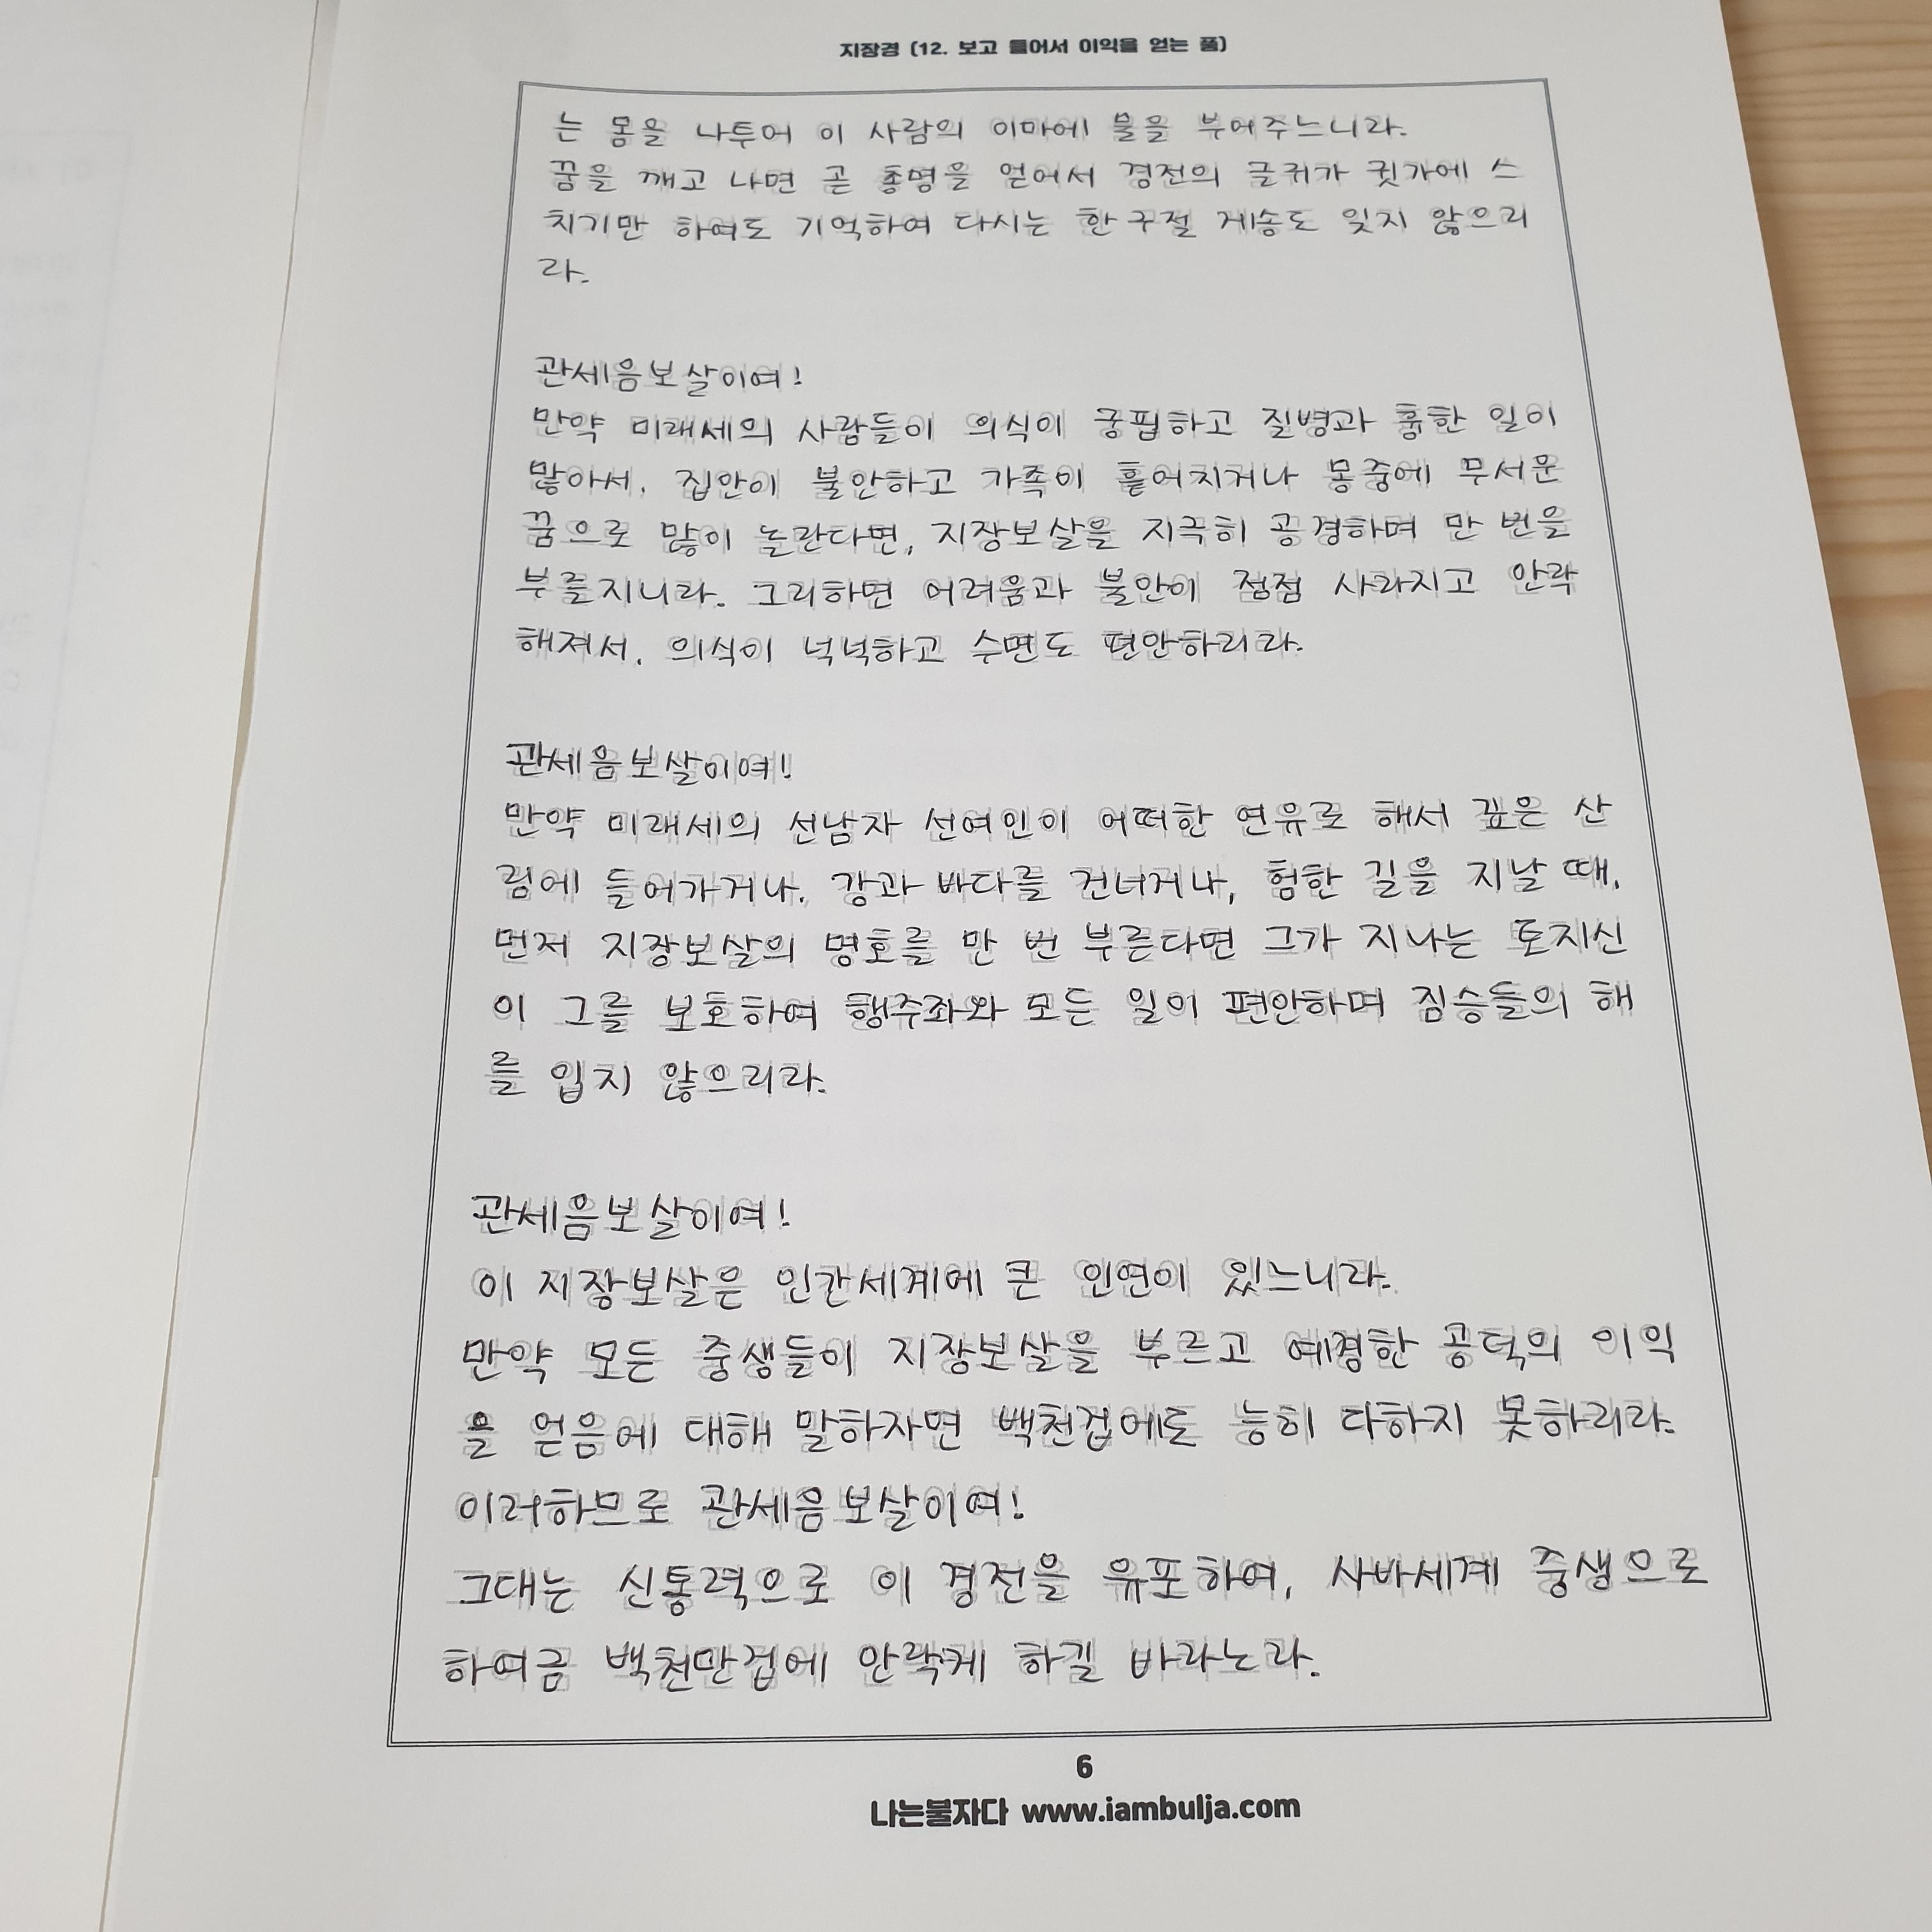 지장경 (12. 보고 들어서 이익을 얻는 품)
는 몸을 나투어 이 사람의 이마에 물을 부어주느니라.
꿈을 깨고 나면 곧 총명을 얻어서 경전의 글귀가 귓가에 스
치기만 하여도 기억하여 다시는 한 구절 게송도 잊지 않으리
라.
관세음보살이여!
만약 미래세의 사람들이 의식이 궁핍하고 질병과 흉한 일이
많아서, 집안이 불안하고 가족이 흩어지거나 몽중에 무서운
꿈으로 많이 놀란다면, 지장보살을 지극히 공경하며 만 번을
부를지니라. 그리하면 어려움과 불안이 점점 사라지고 안락
해져서, 의식이 넉넉하고 수면도 편안하리라.
관세음보살이여!
만약 미래세의 선남자 선여인이 어떠한 연유로 해서 깊은 산
림에 들어가거나, 강과 바다를 건너거나, 험한 길을 지날 때,
먼저 지장보살의 명호를 만 번 부른다면 그가 지나는 토지신
이 그를 보호하여 행주좌와 모든 일이 편안하며 짐승들의 해
를 입지 않으리라.
관세음보살이여!
이 지장보살은 인간세계에 큰 인연이 있느니라.
만약 모든 중생들이 지장보살을 부르고 예경한 공덕의 이익
을 얻음에 대해 말하자면 백천겁에도 능히 다하지 못하리라.
이러하므로 관세음보살이여!
그대는 신통력으로 이 경전을 유포하여, 사바세계 중생으로
하여금 백천만겁에 안락케 하길 바라노라.
6
나는불자다 www.iambulja.com